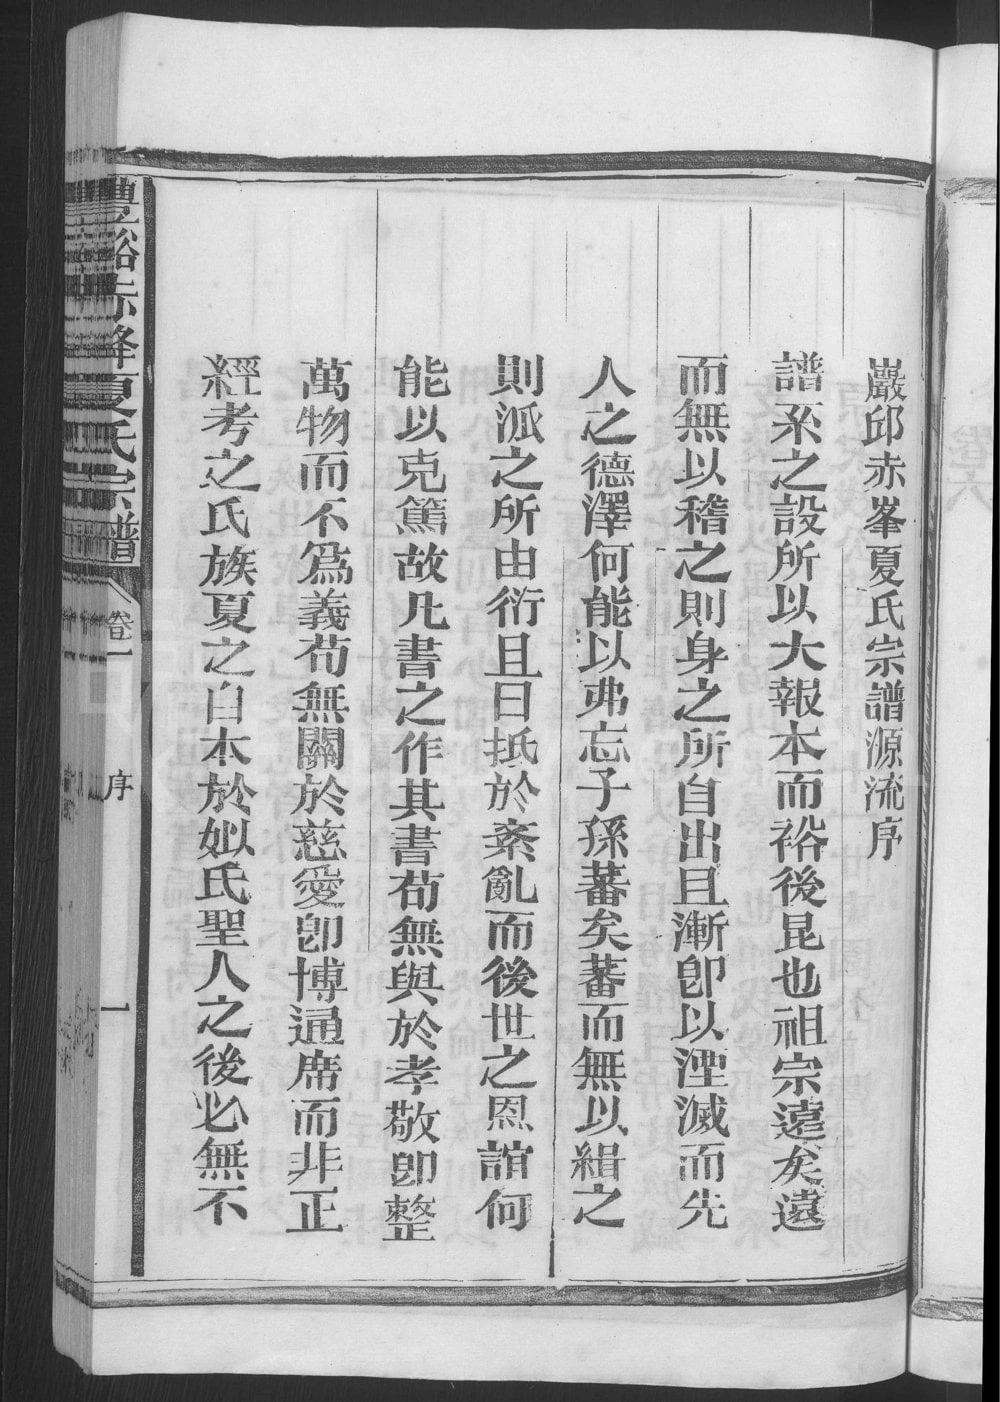 巖邱赤峯夏氏宗譜源流序
譜系之設所以大報本而裕後昆也祖宗遠矣遠
而無以稽之則身之所自出且漸卽以湮滅而先
人之德澤何能以弗忘子孫蕃矣蕃而無以緝之
則派之所由衍且日抵於紊亂而後世之恩誼何
能以克篤故凡書之作其書苟無與於孝敬卽整
萬物而不爲義苟無關於慈愛卽博通席而非正
經考之氏族夏之自本於姒氏聖人之後必無不
豐谿赤峰夏氏宗譜
卷一
序
一